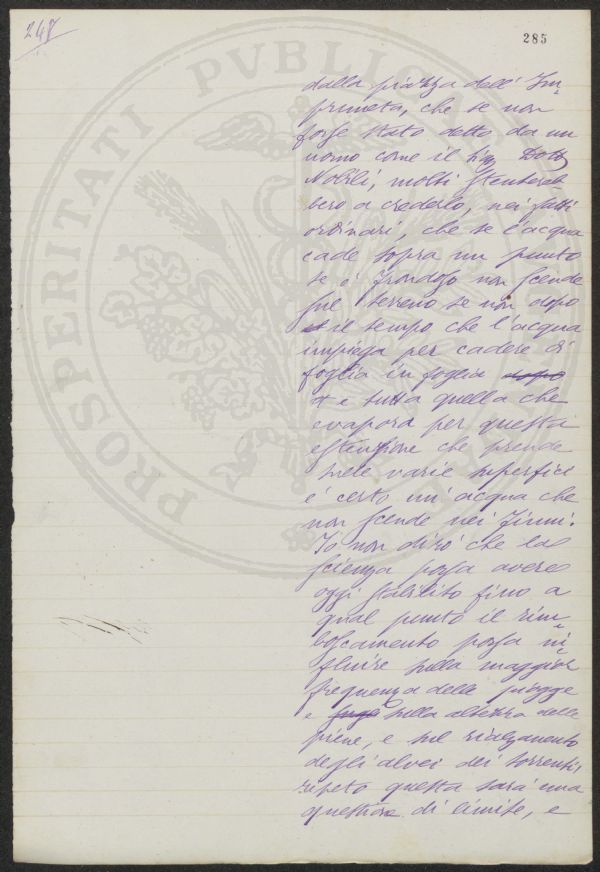 248
285
PROSPERITATI PVBLICAE
dalla piazza dell' Im=
pruneta, che se non
fosse stato detto da un
uomo come il Sig Dott
Nobili, molti stentereb
bero a crederlo, nei fatti
ordinari, che se l'acqua
cade sopra un punto
se è frondoso non scende
sul terreno se non dopo
il tempo che l'acqua
impiega per cadere di
foglia in foglia dopo
e tutta quella che
evapora per questa
estensione che prende
nelle varie superfici
è certo un'acqua che
non scende nei fiumi.
Io non dirò che la
scienza possa avere
oggi stabilito fino a
qual punto il rim=
boscamento possa in=
fluire sulla maggior
frequenza delle piogge
e sulla altezza delle
piene, e sul rialzamento
degli alvei dei torrenti,
ripeto questa sarà una
questione di limite, e